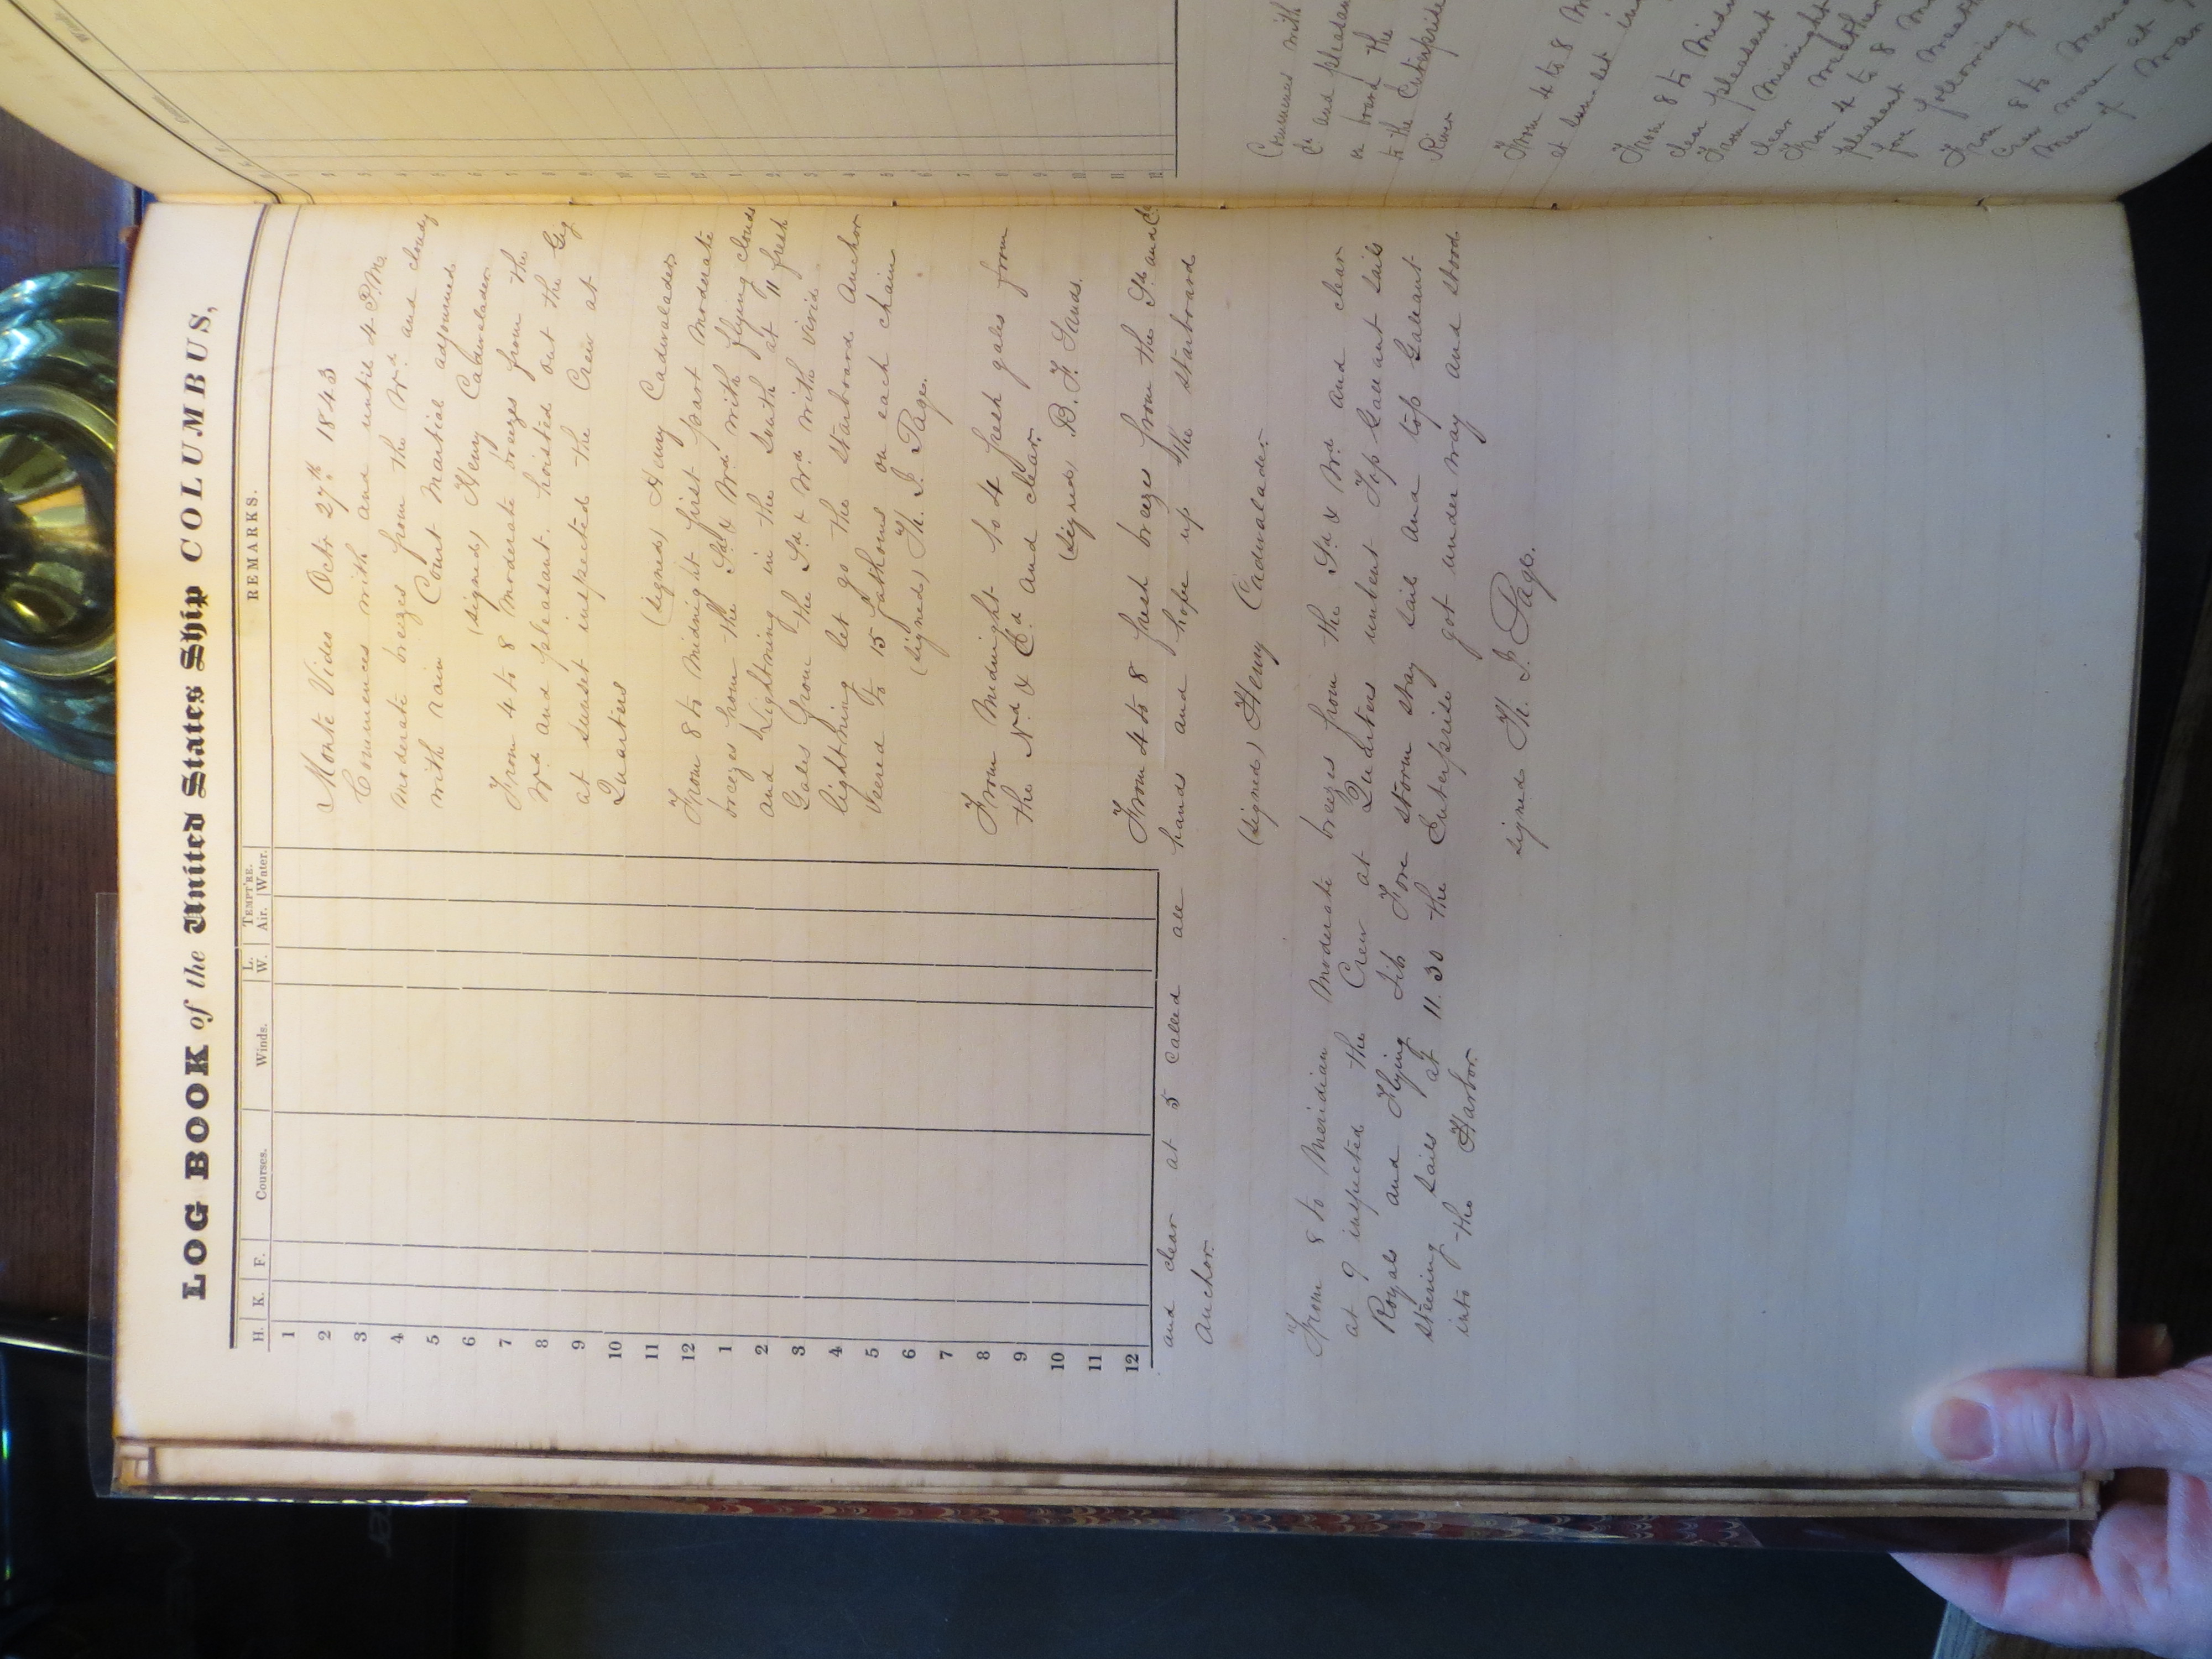 LOG BOOK of the United States Ship COLUMBUS,
H. K. F. Courses. Winds. L. W. TEMPT'RE. Air. Water. REMARKS.
1
2
3
4
5
6
7
8
9
10
11
12
1
2
3
4
5
6
7
8
9
10
11
12
Monte Video Octr 27th 1843
Commences with and until 4 P.M.
moderate breezes from the Wd and cloudy
with rain Court Martial adjourned
(signed) Henry Cadwalader
From 4 to 8 moderate breezes from the
Wd and pleasant. hoisted out the Gig
at sunset inspected the Crew at
Quarters
(signed) Henry Cadwalader
From 8 to Midnight first part moderate
breezes from the Sd & Wd with flying clouds
and Lightning in the South at 11 fresh
Gales from the Sd & Wd with vivid
lightning let go the Starboard Anchor
Veered to 15 fathoms on each chain
(signed) Th. J. Page.
From Midnight to 4 fresh gales from
the Nd & Ed and clear
(signed) B. F. Sands.
From 4 to 8 fresh breezes from the Sd and Ed
and clear at 5 called all hands and hove up the starboard
Anchor.
(signed) Henry Cadwalader
From 8 to Meridian moderate breezes from the Sd & Wd and clear
at 9 inspected the Crew at Quarters unbent Top Gallant sails
Royals and Flying Jib Fore storm stay sail and top Gallant
steering sails at 11.30 the Enterprise got under way and stood
into the Harbor.
signed Th. J. Page.
Commences with
Ed and pleasant
on board the
to the Enterprise
River
From 4 to 8 M
at sun-set in
From 8 to Mid
clear pleasant
From Midnight
clear weather
From 4 to 8 M
pleasant weath
for following
From 8 to Meri
Crew more at
Man of War